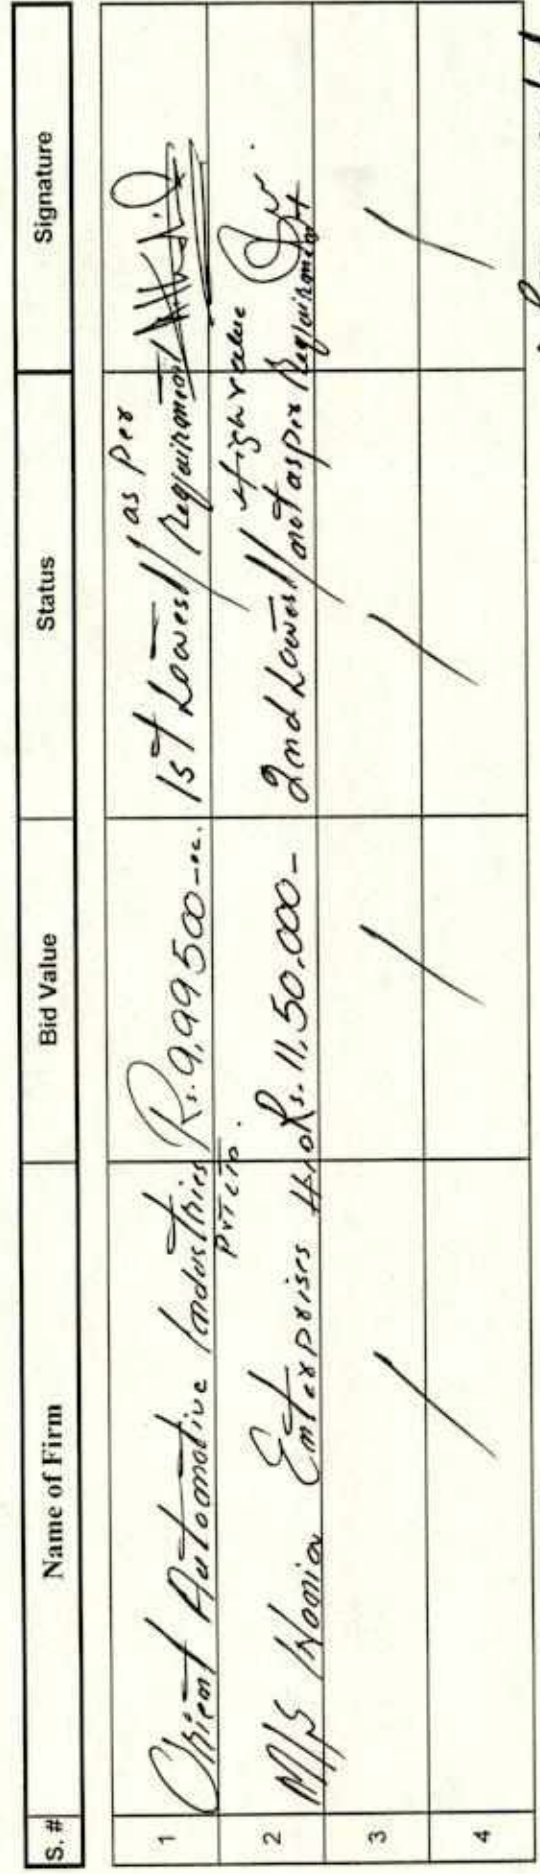 S. # Name of Firm Bid Value Status Signature
1 Orient Automotive Industries Pvt LTD. Rs. 9,99500 1st Lowest / as Per Requirment
2 M/S Enterprises Rs. 11,50,000- 2nd Lowest / High value not as per Requirment
3 /
4